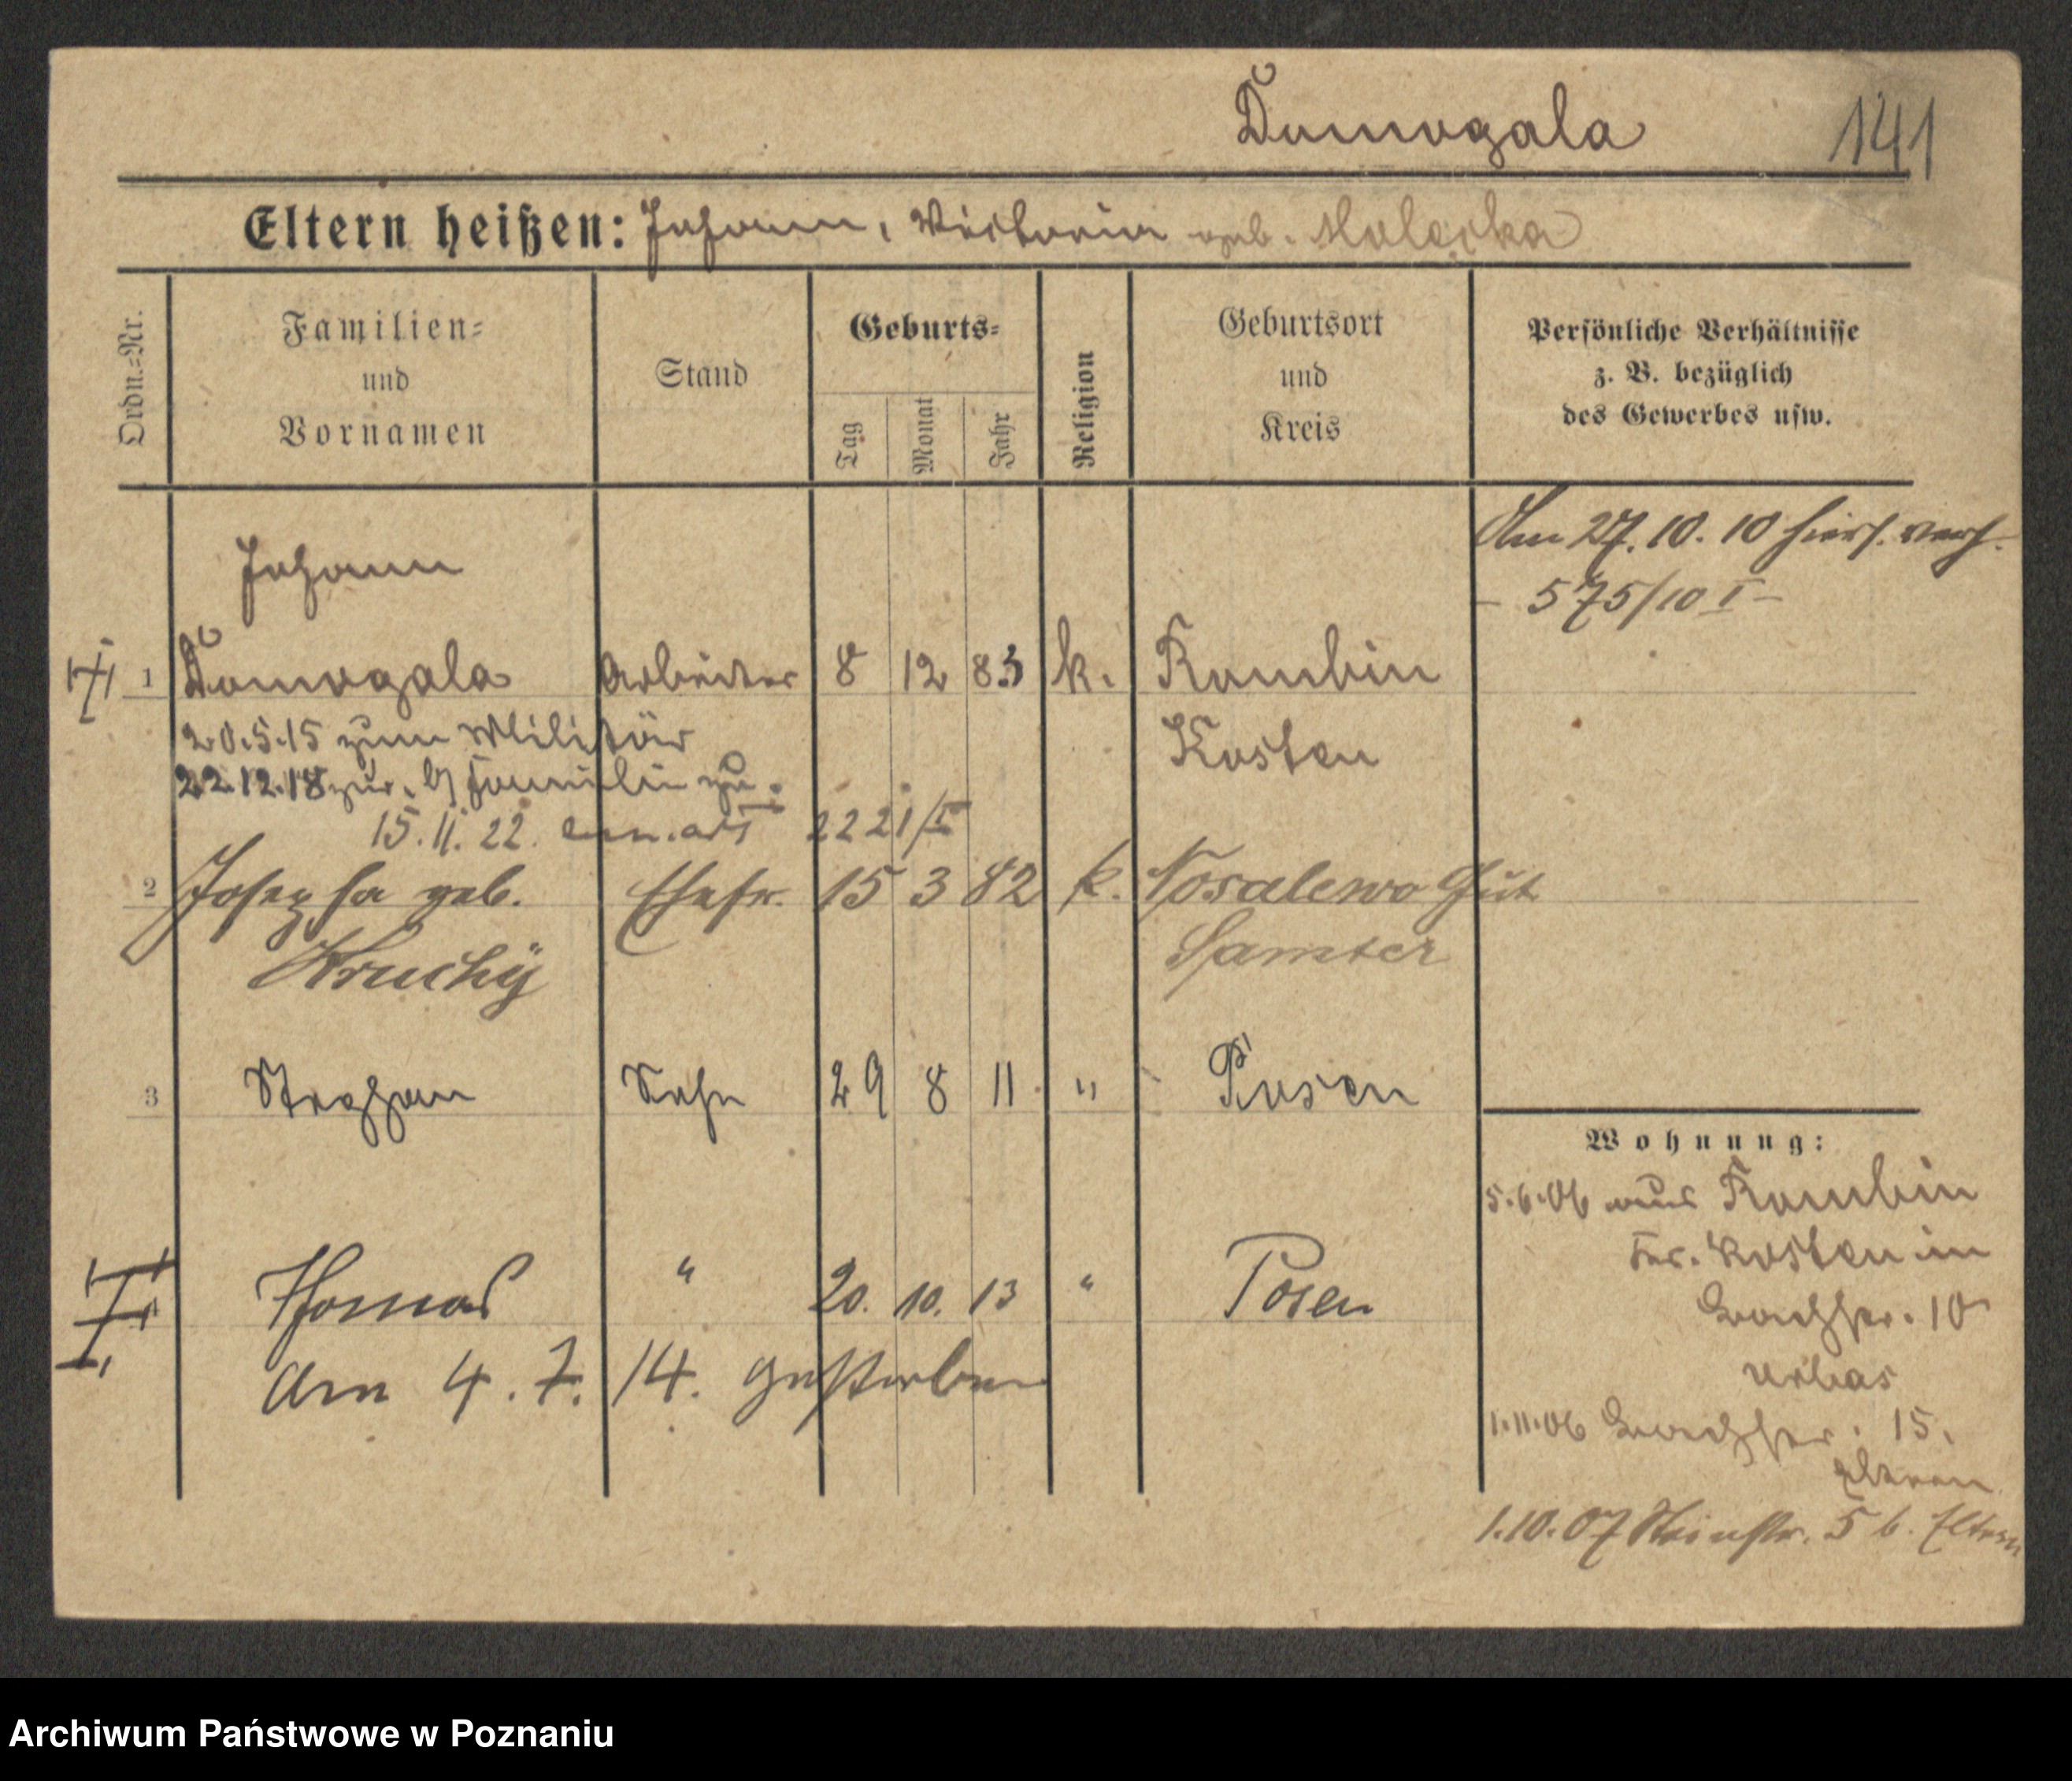 Domogala
141
Eltern heißen: Johann, Victoria geb. Malecka
Ordn.=Nr.
Familien=
und
Vornamen
Stand
Geburts=
Tag
Monat
Jahr
Religion
Geburtsort
und
Kreis
Persönliche Verhältnisse
z. B. bezüglich
des Gewerbes usw.
Am 27.10.10 hiers. verh.
- 575/10 I -
Johann
1 Domogala Arbeiter 8 12 83 k. Rombin
Kosten
20.5.15 zum Militär
22.12.18 zur. b/ Familie zu.
15.11.22. 2221/I
2 Josepha geb. Ehefr. 15 3 82 k. Nosalewo Gut
Kruchÿ Samter
3 Stephan Sohn 29 8 11 " Posen
Thomas " 20. 10. 13 " Posen
Am 4.7.14. gestorben
Wohnung:
5.6.06 aus Rombin
Kr. Kosten in
Bachstr. 10
Urbas
1.11.06 Bachstr. 15.
Eltern
1.10.07 Steinstr. 5 b. Eltern
Archiwum Państwowe w Poznaniu